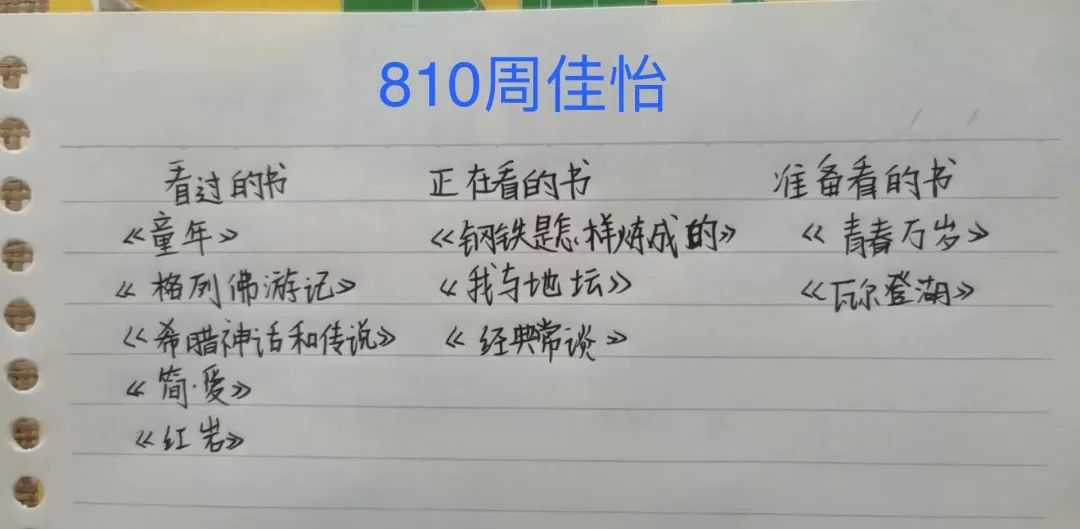 810周佳怡
看过的书 正在看的书 准备看的书
《童年》 《钢铁是怎样炼成的》 《青春万岁》
《格列佛游记》 《我与地坛》 《瓦尔登湖》
《希腊神话和传说》 《经典常谈》
《简·爱》
《红岩》